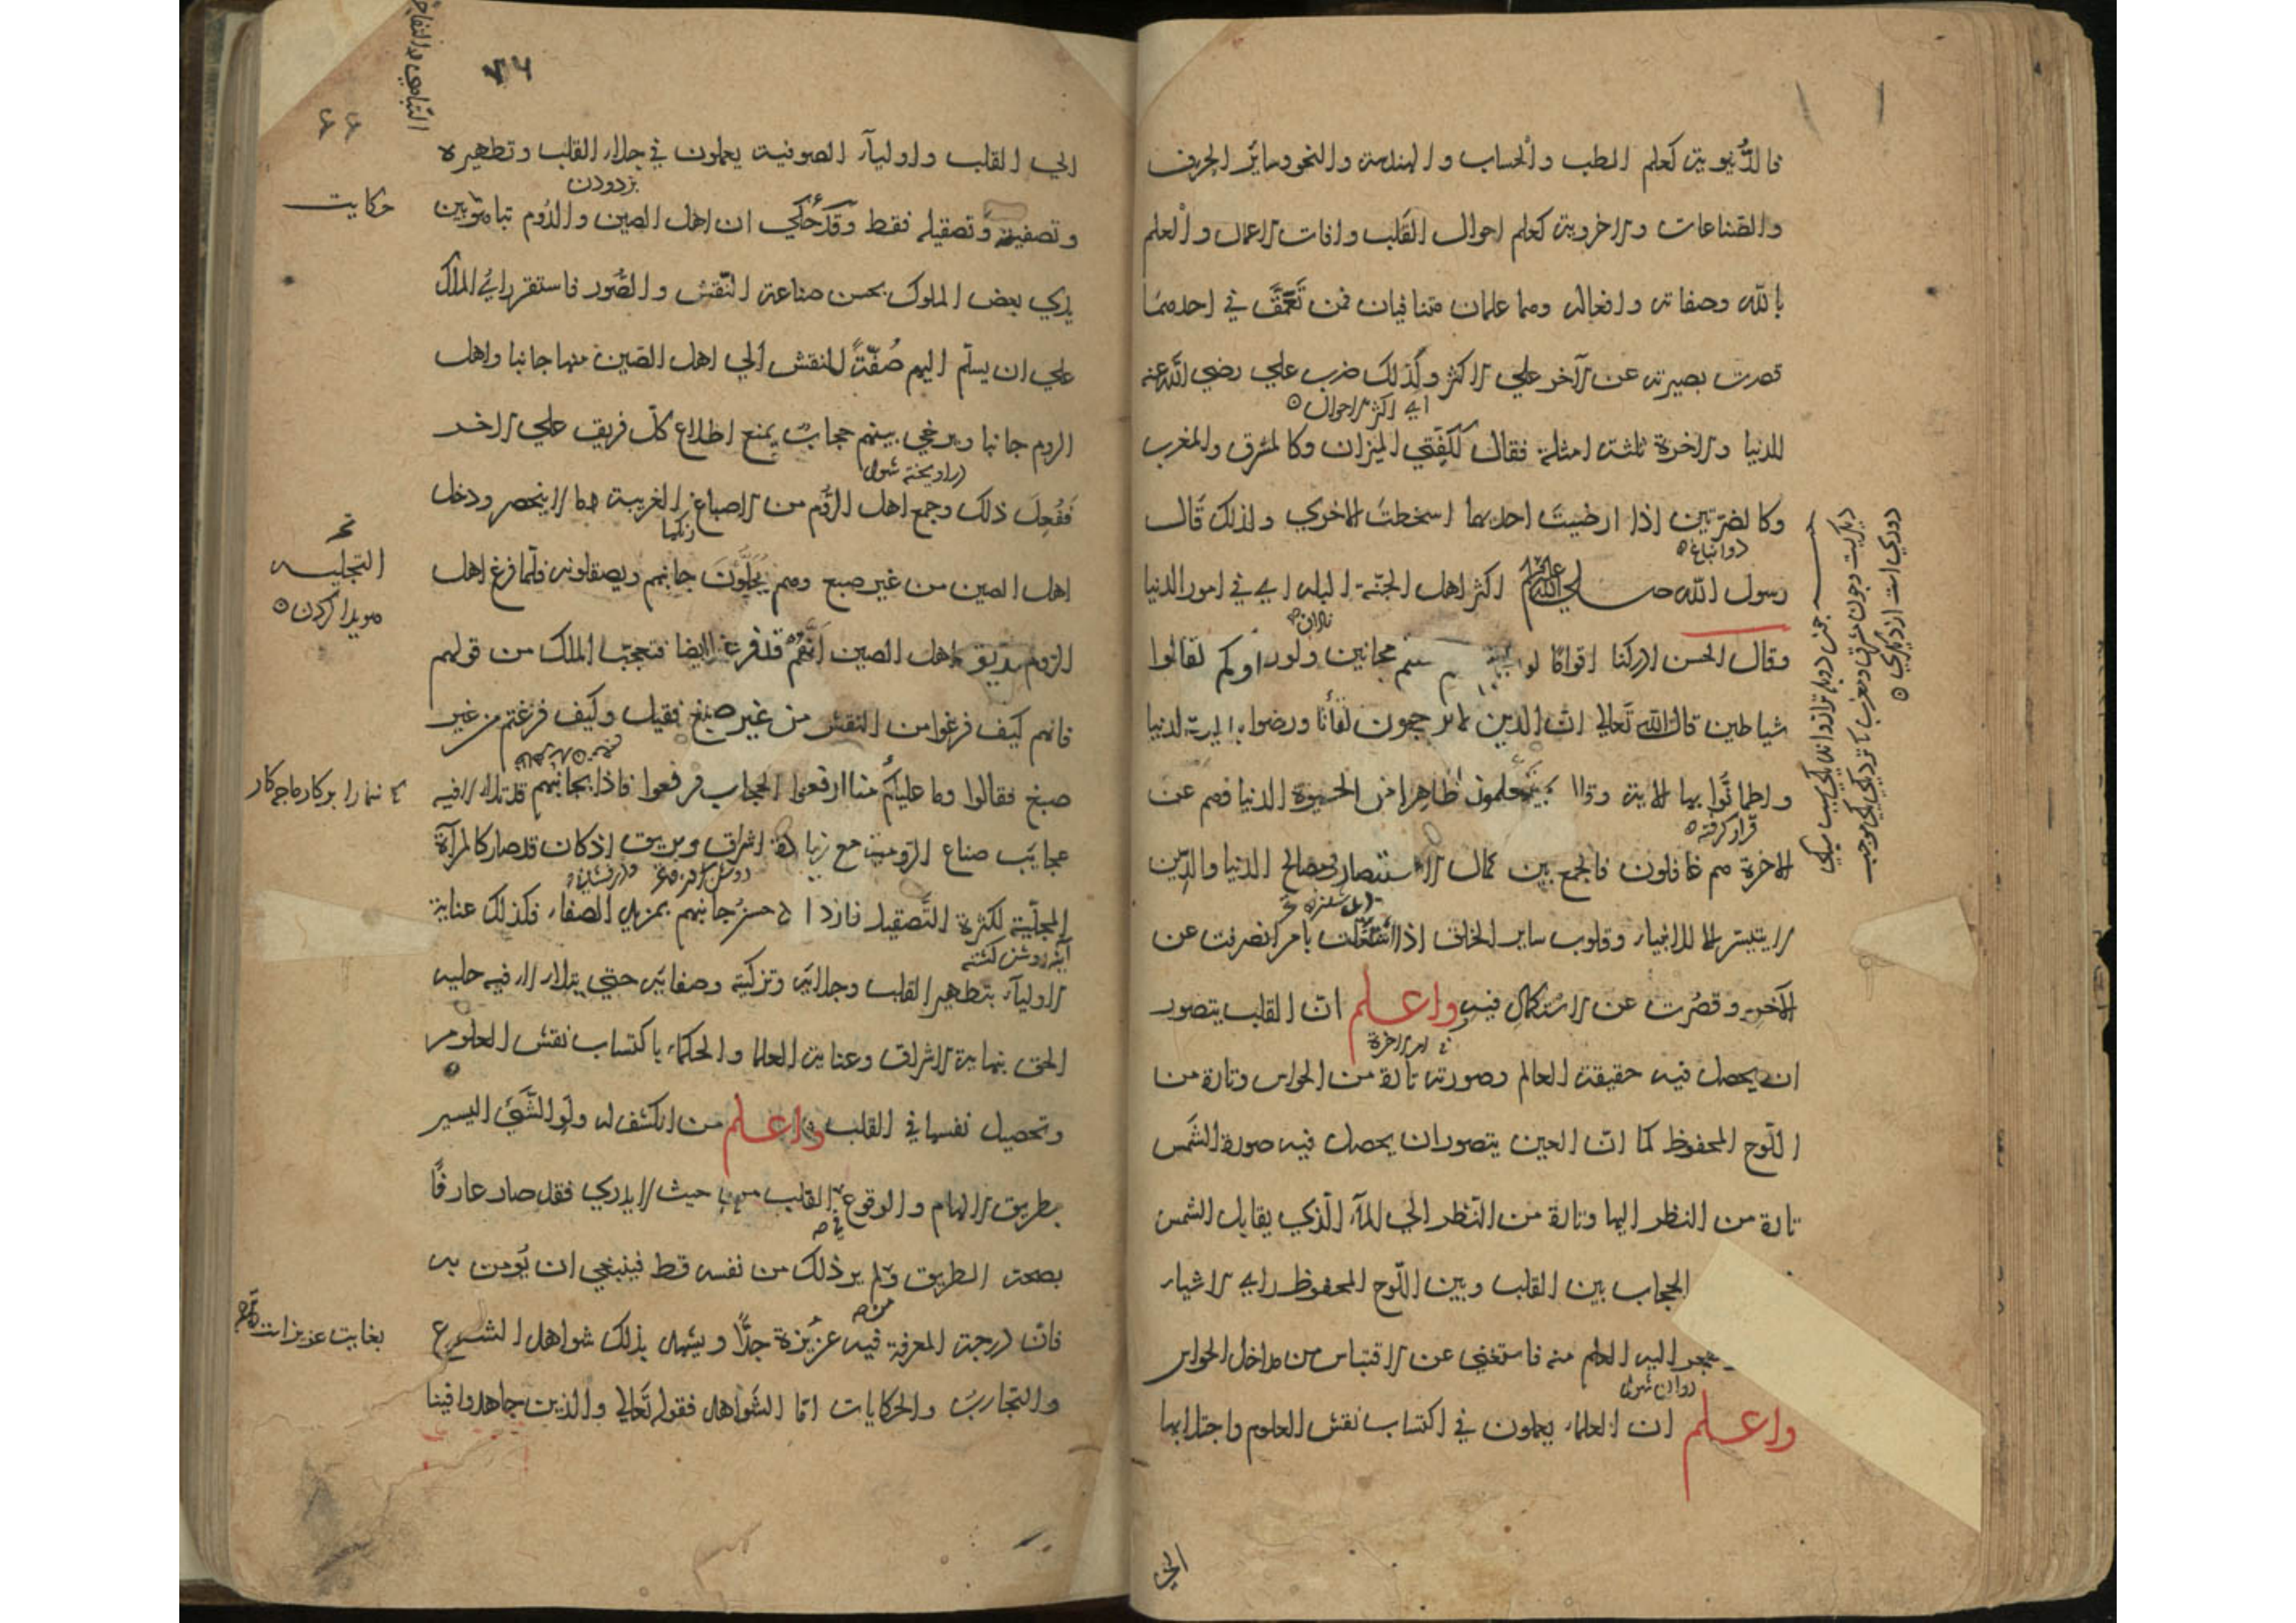 فالدُّنيوية كعلم الطب والحساب والهندسة والنحو وسائر الحرف
والصّناعات والاخروية كعلم احوال القلب وافات الاعمال والعلم
بالله وصفاته وافعاله وهما علمان متنافيان فمن تَعَمَّقَ في احدهما
قصرت بصيرته عن الآخر علي الاكثر ولذلك ضرب علي رضي الله عنه
اي اكثر الاحوال
للدنيا والاخرة ثلثة امثلة فقال ككفّتي الميزان وكالمشرق والمغرب
وكالضرتين اذا ارضيت احديهما اسخطت الاخري ولذلك قال
دو انباغ
رسول الله صلي الله عليه وسلم اكثر اهل الجنّة البله اي في امور الدنيا
نادان
وقال الحسن ادركنا اقوامًا لو مجانين ولو راوكم لقالوا
شياطين قال الله تعالي انّ الذين لا يرجون لقأنا ورضوا بالحيوة الدنيا
واطمانّوا بها الاية وقال يعلمون ظاهرا من الحيوة الدنيا وهم عن
قرار كرفته
الاخرة هم غافلون فالجمع بين كمال الاستبصار في مصالح الدنيا والدّين
لا يتيسر الا للانبياء وقلوب ساير الخلق اذا اشتغلت بامر انصرفت عن
الآخر وقصُرت عن الاستكمال فيه واعلم انّ القلب يتصور
في امر الاخرة
ان يحصل فيه حقيقة العالم وصورته تارة من الحواس وتارة من
اللّوح المحفوظ كما انّ العين يتصور ان يحصل فيه صورة الشمس
تارة من النظر اليها وتارة من النّظر الي المآء الّذي يقابل الشمس
الحجاب بين القلب وبين اللّوح المحفوظ راي الاشياء
اليه العلم منه فاستغني عن الاقتباس من مداخل الحواس
روان شود
واعلم ان العلماء يعملون في اكتساب نقش العلوم واجتلابها
الي
دوري است از ديكري
٧٦
٦٦
الي القلب واوليآء الصوفية يعملون في جلاء القلب وتطهيره
بزدودن
حكايت
وتصفيته وتصقيله فقط وقد حُكي ان اهل الصين والرّوم تباهوا بين
يدي بعض الملوك بحسن صناعة النّقش والصُّور فاستقر راي الملك
علي ان يسلّم اليهم صُفّةً للنقش الي اهل الصّين منها جانبا واهل
الروم جانبا ويرخي بينهم حجابٌ يمنع اطلاع كلّ فريق علي الاخر
دراويخته شود
فَفُعِلَ ذلك وجمع اهل الرّوم من الاصباغ الغريبة مما لا ينحصر ودخل
رنكها
اهل الصين من غير صبغ وهم يُجلّون جانبهم ويصقلونه فلمّا فرغ اهل
التجليه
هويدا كردن
الروم اهل الصين انّهم قد فرغوا ايضا فتعجّب الملك من قولهم
فانهم كيف فرغوا من النقش من غير صبغ فقيل وكيف فرغتم من غير
صبغ فقالوا وما عليكم منا ارفعوا الحجاب فرفعوا فاذا بجانبهم قد تلالا فيه
شما را بر كار ما چه كار
عجايب صناع الروميّة مع زيادة اشراق وبريق اذ كان قد صار كالمرآة
المجلّية لكثرة التّصقيل فازداد حسن جانبهم بمزيد الصفاء فكذلك عناية
آينه روشن كشته
الاوليآء بتطهير القلب وجلائه وتزكية وصفائه حتي يتلالا فيه جلية
الحق بنهاية الاشراق وعناية العلما والحكماء باكتساب نقش العلوم
وتحصيل نفسها في القلب واعلم من انكشف له ولو الشّيء اليسير
بطريق الالهام والوقوع القلب من حيث لا يدري فقد صار عارفًا
بصحة الطريق ولم ير ذلك من نفسه قط فينبغي ان يُومن به
فانّ درجة المعرفة فيه عزيزة جدًّا ويشهد بذلك شواهد الشرع
بغايت عزيز است
والتجارب والحكايات امّا الشّواهد فقوله تعالي والذين جاهدوا فينا